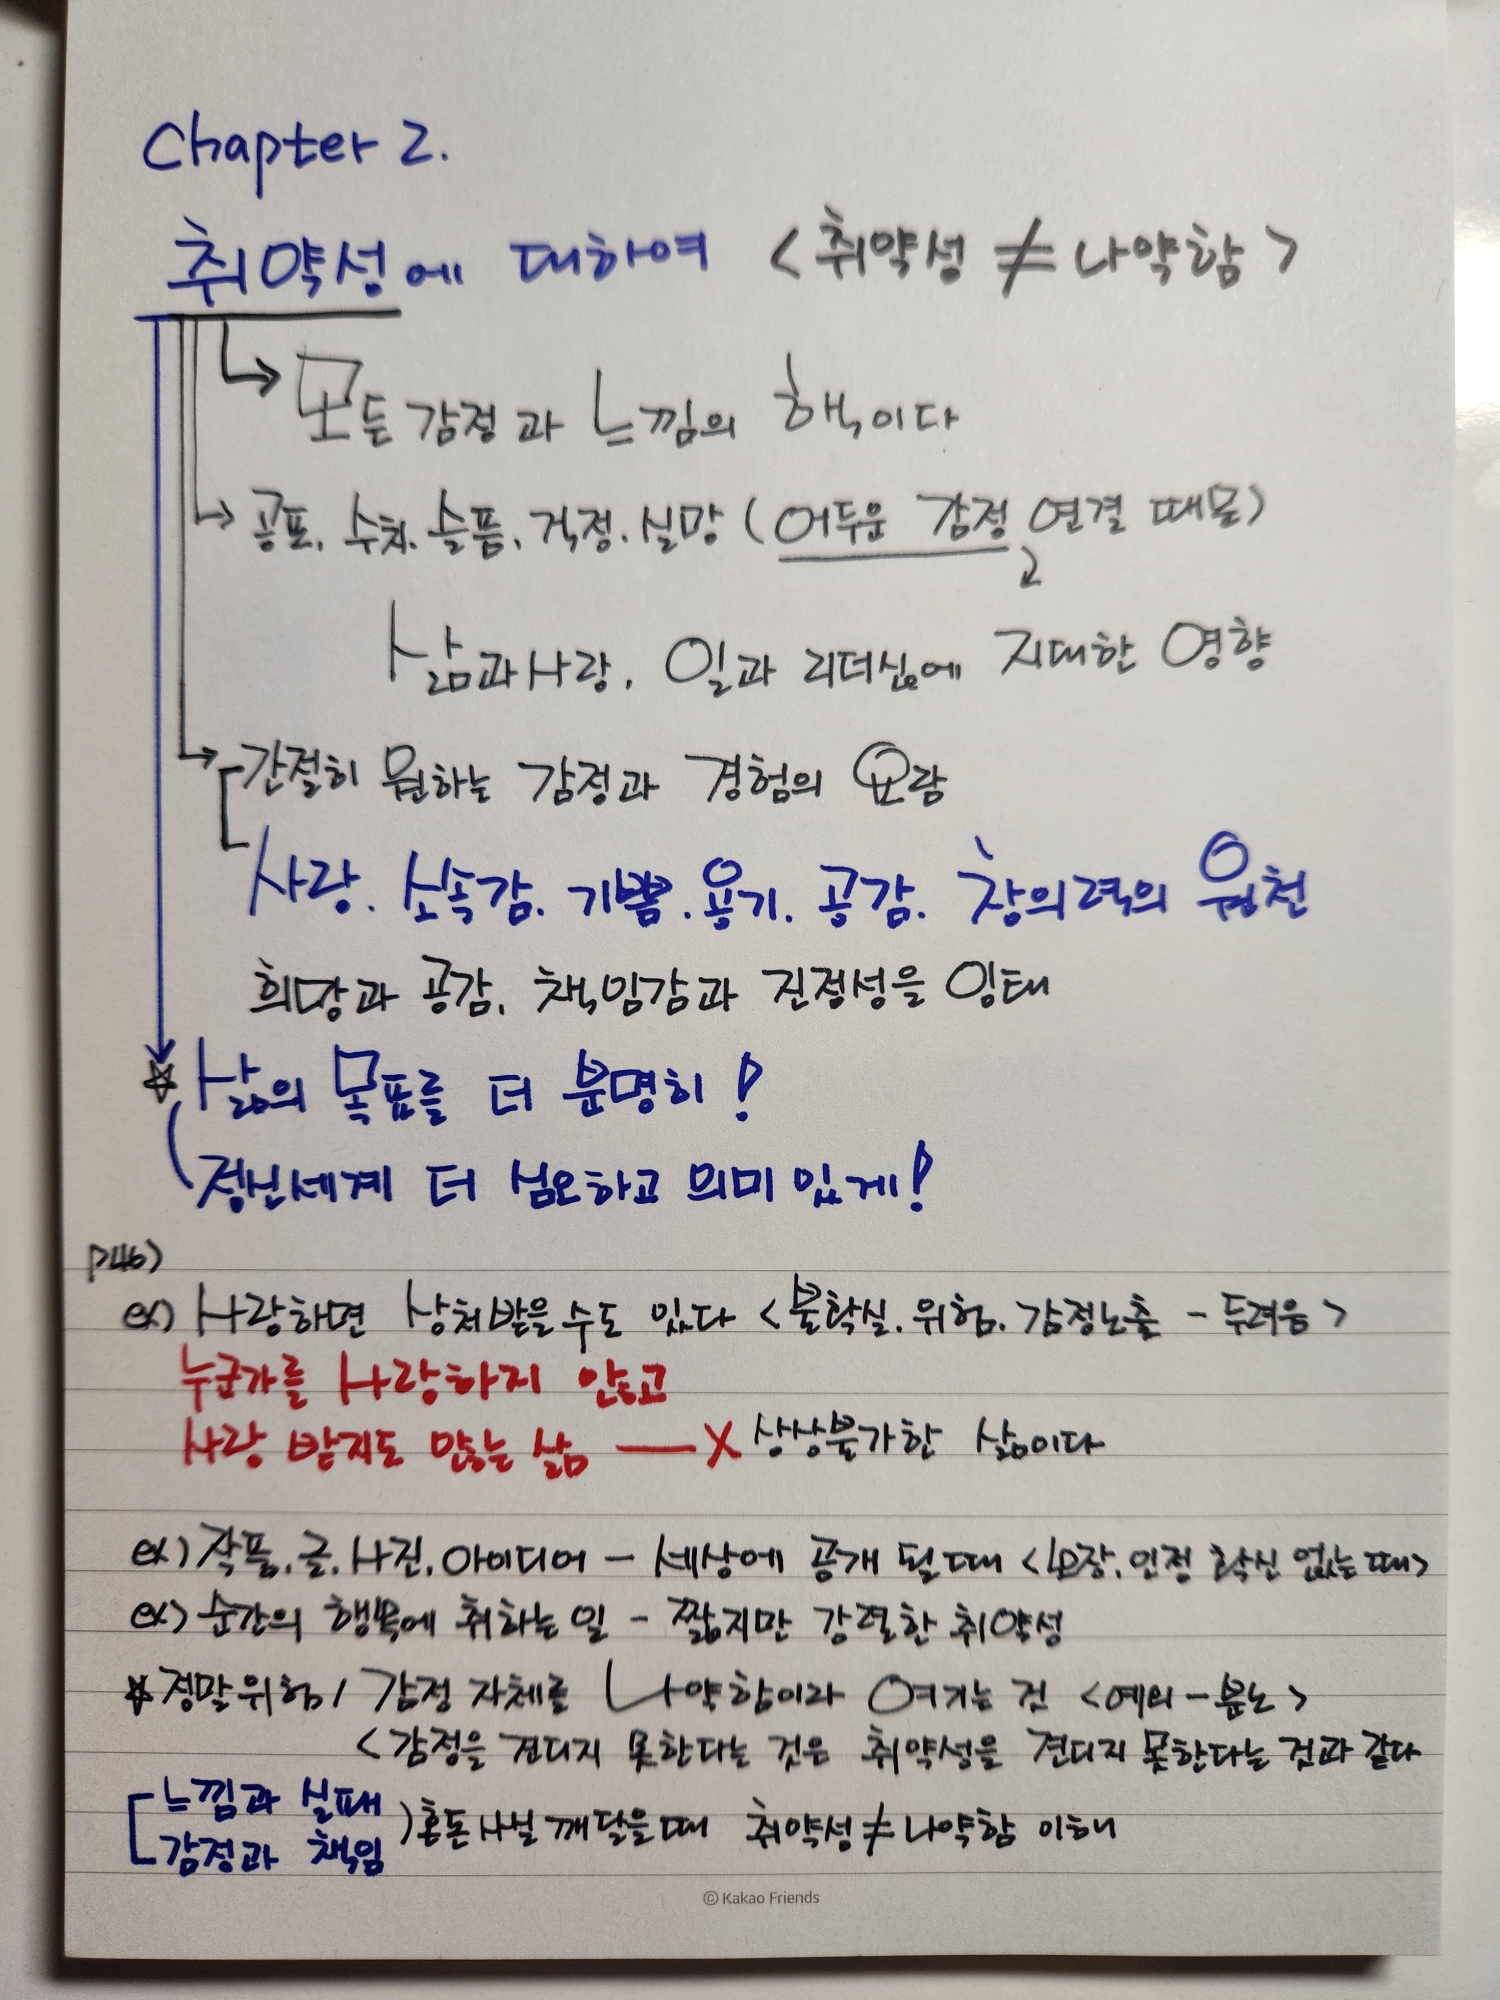 Chapter 2.
취약성에 대하여 <취약성 ≠ 나약함>
모든 감정과 느낌의 핵이다
공포, 수치, 슬픔, 걱정, 실망 (어두운 감정 연결 때문)
삶과 사랑, 일과 리더십에 지대한 영향
간절히 원하는 감정과 경험의 요람
사랑. 소속감. 기쁨. 용기. 공감. 창의력의 원천
희망과 공감, 책임감과 진정성을 잉태
☆ 삶의 목표를 더 분명히!
정신세계 더 심오하고 의미 있게!
P46)
ex) 사랑하면 상처받을 수도 있다 <불확실. 위험. 감정노출 - 두려움>
누군가를 사랑하지 않고
사랑 받지도 않는 삶 — X 상상불가한 삶이다
ex) 작품. 글. 사진. 아이디어 - 세상에 공개 될 때 <장. 인정 확신 없는 때>
ex) 순간의 행복에 취하는 일 - 짧지만 강렬한 취약성
☆ 정말위험! 감정 자체를 나약함이라 여기는 것 <예외 - 분노>
<감정을 견디지 못한다는 것은 취약성을 견디지 못한다는 것과 같다
느낌과 실패
감정과 책임
) 혼돈 사실 깨달을 때 취약성 ≠ 나약함 이해
© Kakao Friends